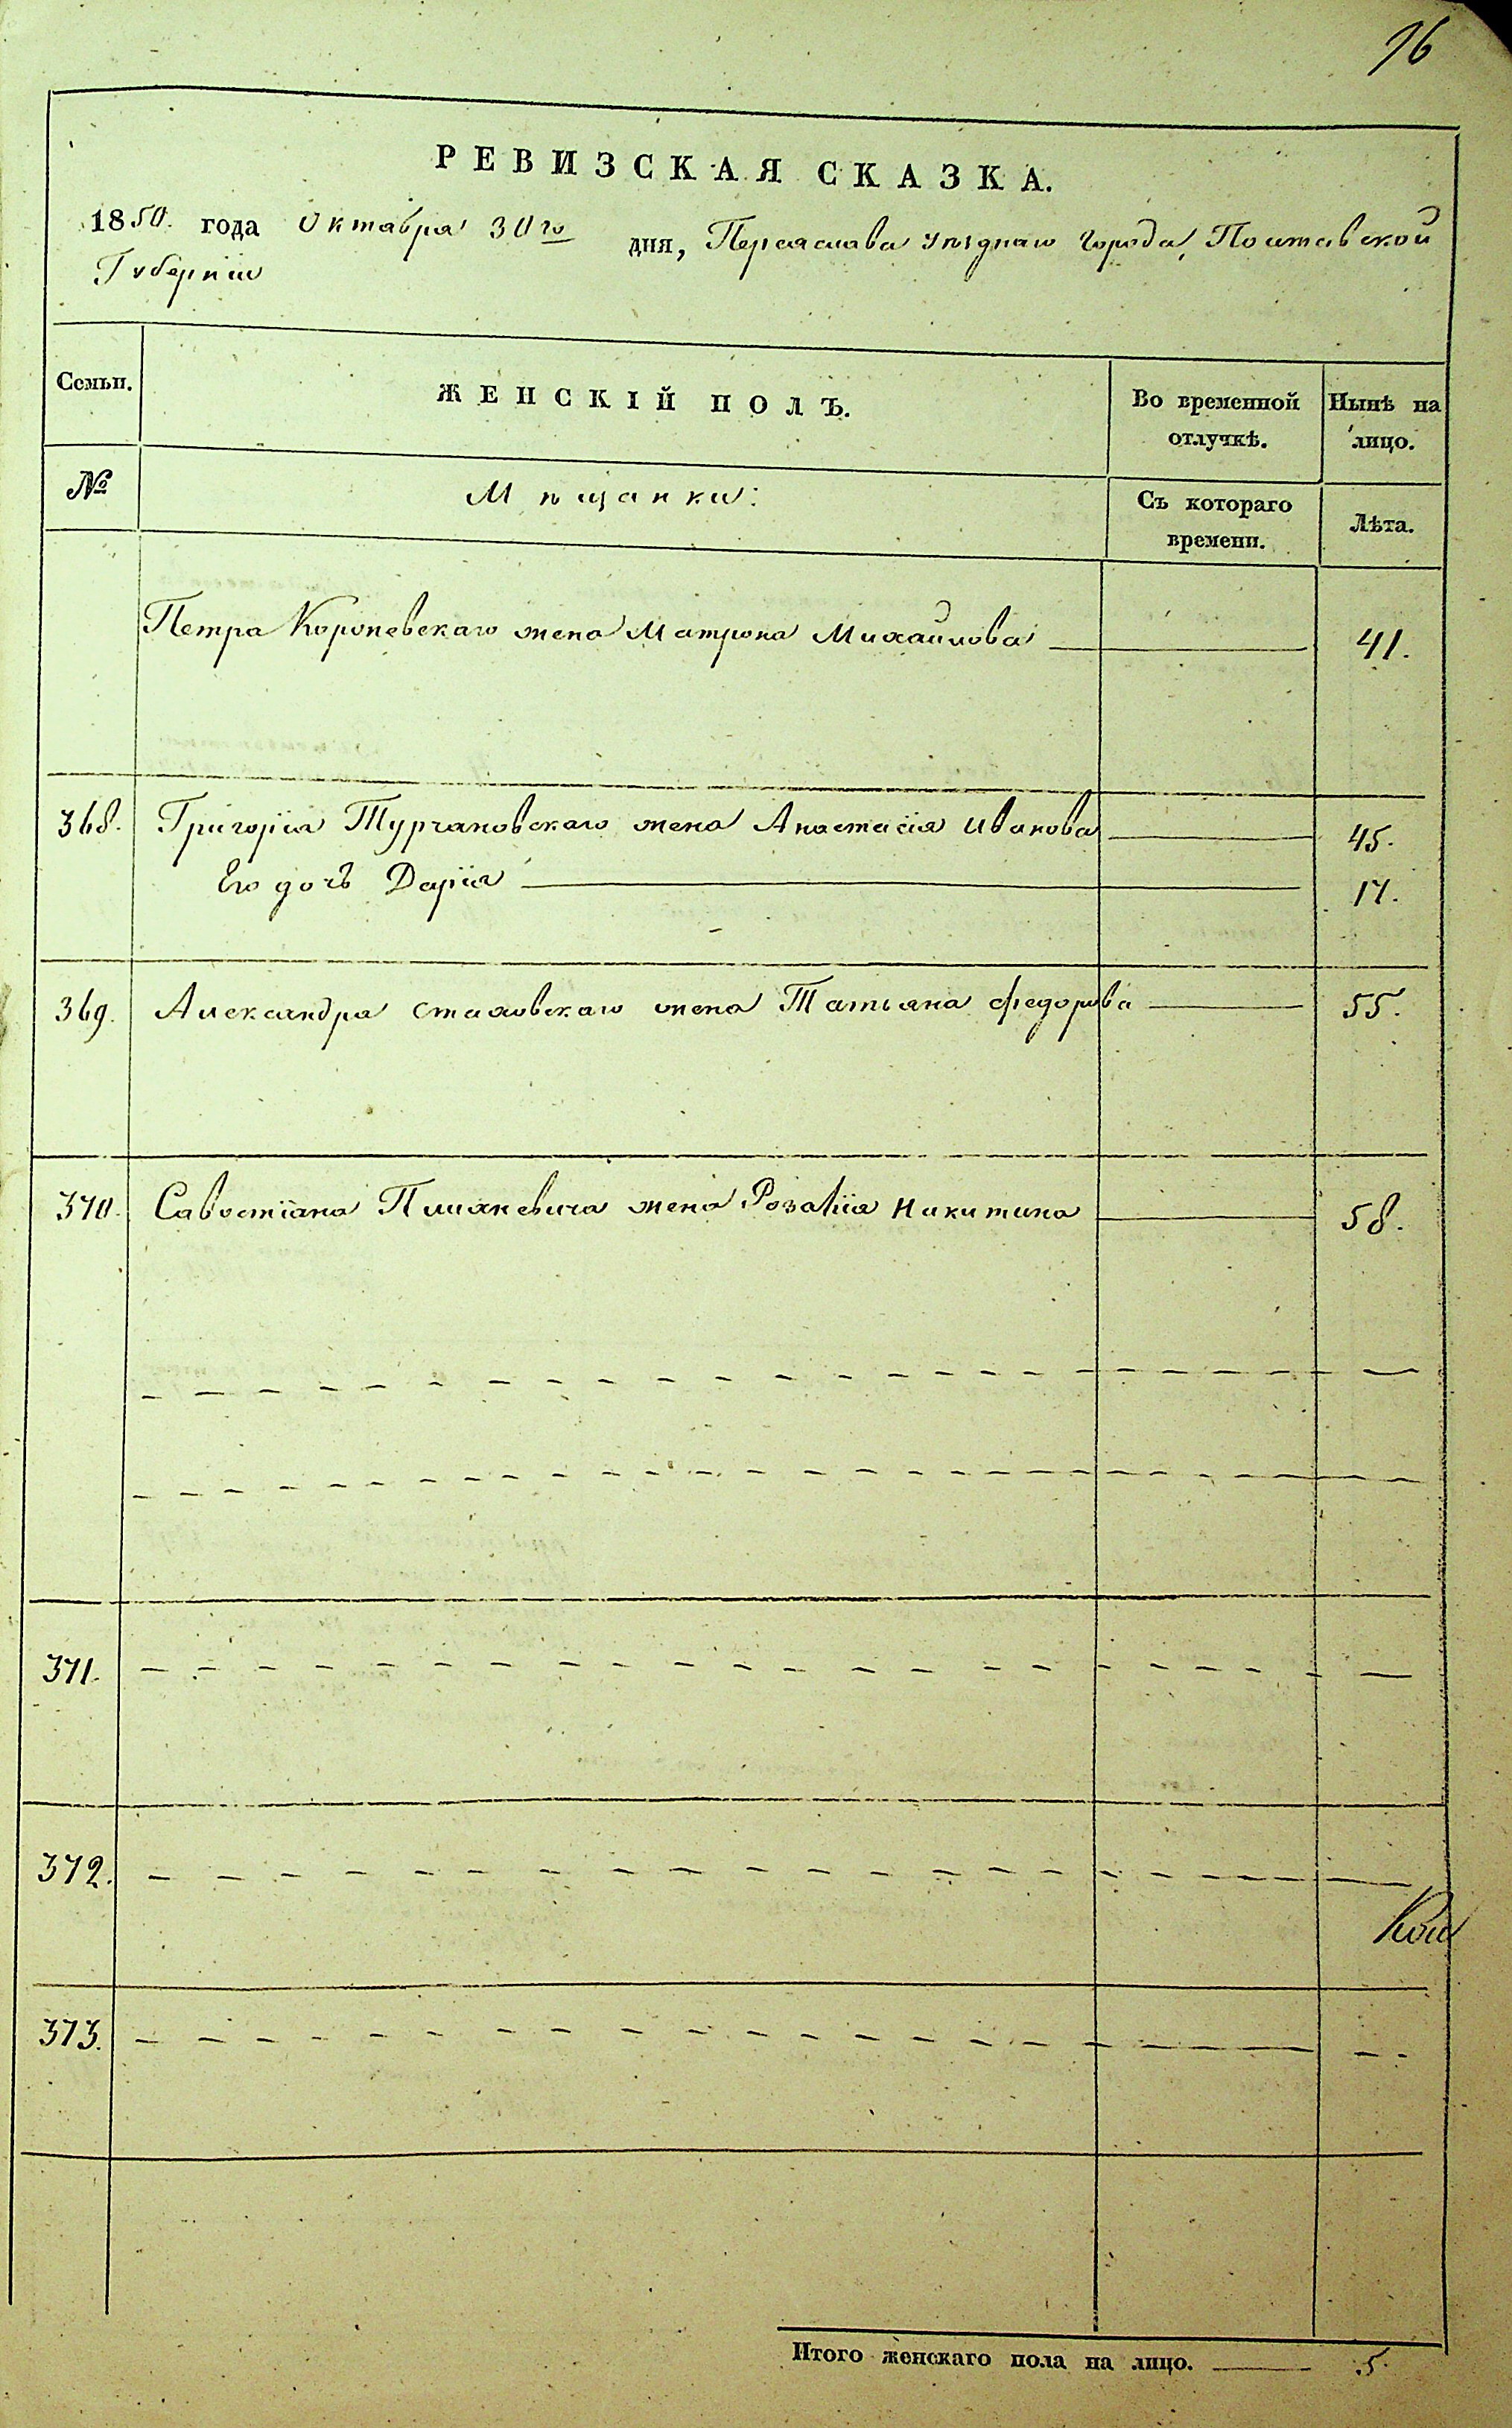 96
РЕВИЗСКАЯ СКАЗКА.
1850. года Октабра 30го дня, Переяслава уѣзднаго города, Полтавской
Губерніи
Семьи.
ЖЕНСКІЙ ПОЛЪ.
Во временной отлучкѣ.
Нынѣ на лицо.
№
Мѣщанки:
Съ котораго времени.
Лѣта.
Петра Короневскаго жена Матрона Михайлова 41.
368. Григорія Турчановскаго жена Анастасія Иванова 45.
Его дочь Дарія 17.
369. Александра Стаховскаго жена Татьяна Федорова 55.
370. Савостіана жена Розалія Никитина 58.
371.
372.
373.
Итого женскаго пола на лицо. 5.